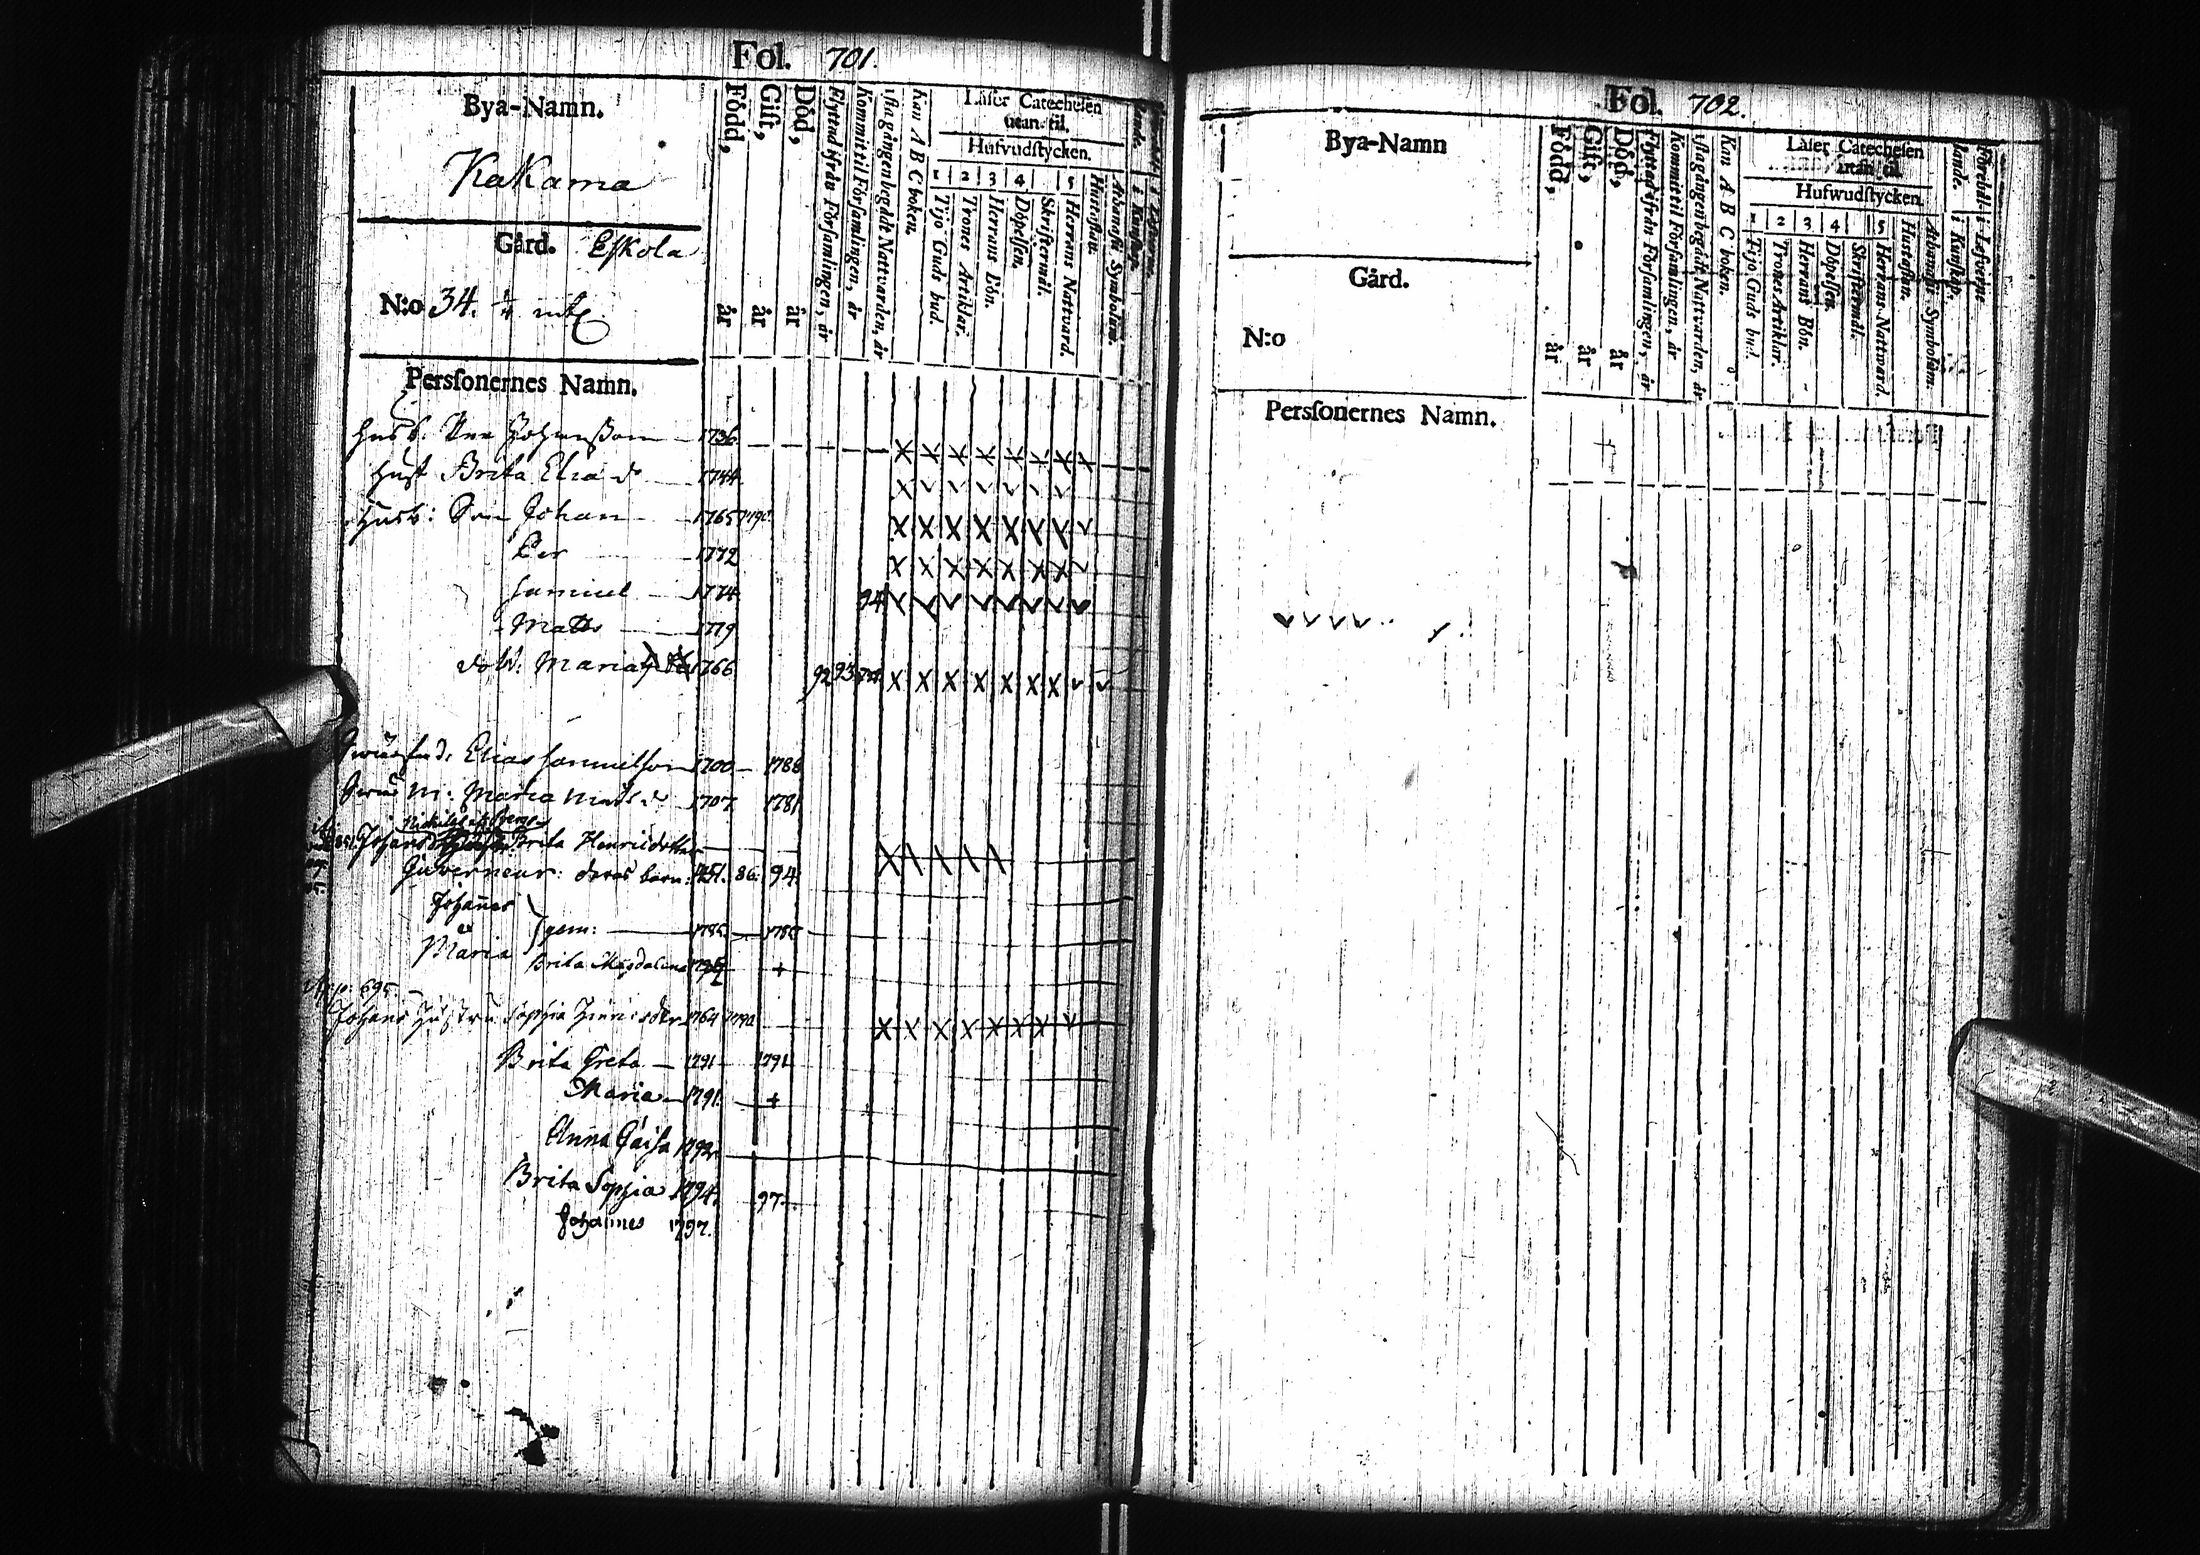 Fol. 701.
Bya-Namn.
Kakama
Gård. Eskola
N:o 34. 1/4 mtl
Född, år
Gift, år
Död, år
Flyttad ifrån Församlingen, år
Kommit til Församlingen, år
första gången begådt Nattvarden, år
Kan A B C boken.
Läser Catechesen
utan til.
Hufvudstycken.
1 2 3 4 5
Tijo Guds bud.
Trones Artiklar.
Herrans Bön.
Döpelsen.
Skriftermål.
Herrans Nattvard.
Hustaflan.
Athanasii Symbolum.
Personernes Namn.
Johansson 1736
Hust Brita Elia d 1744
Husb: Son Johan 1765 1790
Per 1772
Samuel 1774 94
Matts 1779
dott: Maria 1766 92 93
Elias Samuelson 1700 1788
M: Maria Mats d 1707 1781
Johans Brita Henricsdotter
Guverneur: deras barn: 1751. 86. 94
Johannes
Maria
gem: 1785 1785
Brita Magdalena
p: 695.
Johans Hustru Sophia Hinricsdtr 1764 1790
Brita Greta 1791 1791
Maria 1791 +
Anna Caisa 1792
Brita Sophia 1794. 97.
Johannes 1797.
Fol. 702.
Bya-Namn
Gård.
N:o
Född, år
Gift, år
Död, år
Flyttad ifrån Församlingen, år
Kommit til Församlingen, år
första gången begådt Nattvarden, år
Kan A B C boken.
Läser Catechesen
utan til.
Hufwudstycken.
1 2 3 4 5
Tijo Guds bud.
Trones Artiklar.
Herrans Bön.
Döpelsen.
Skriftermål.
Herrans Nattward.
Hustaflan.
Athanasii Symbolum.
i Kunskap.
i Lefverne
Personernes Namn.